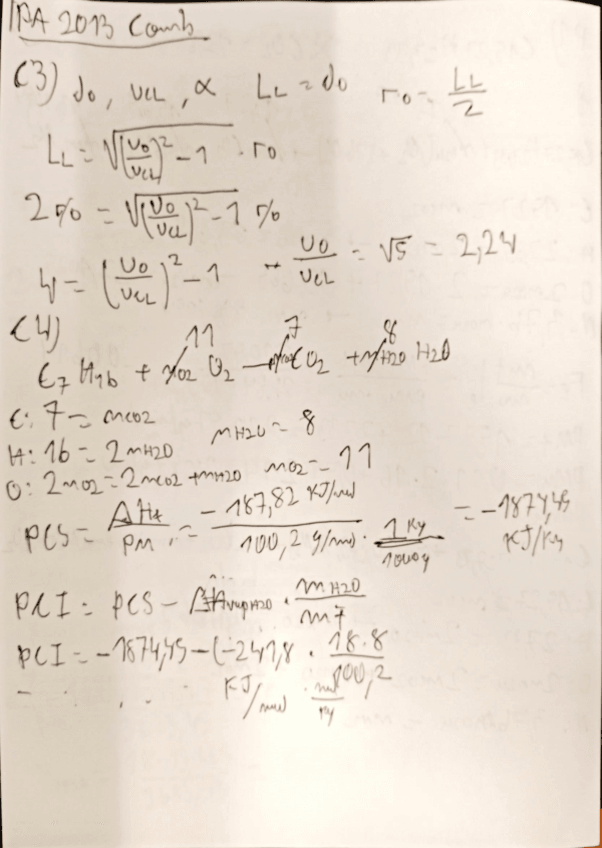 IPA 2013 Comb
C3) do, UCL, α LL = do ro = LL/2
LL = √((U0/UCL)² - 1) · ro
2ro = √((U0/UCL)² - 1) ro
4 = (U0/UCL)² - 1 U0/UCL = √5 = 2,24
C4) 11 7 8
C7 H16 + nO2 O2 → nCO2 CO2 + nH2O H2O
C: 7 = nCO2
H: 16 = 2nH2O nH2O = 8
O: 2nO2 = 2nCO2 + nH2O nO2 = 11
PCS = ΔHf/PM = -187,82 KJ/mol / 100,2 g/mol · 1 Kg/1000g = -1874,45 KJ/Kg
PCI = PCS - ΔHvapH2O · mH2O/mF
PCI = -1874,45 - (-241,8 · 18·8/100,2
KJ/mol mol/Kg